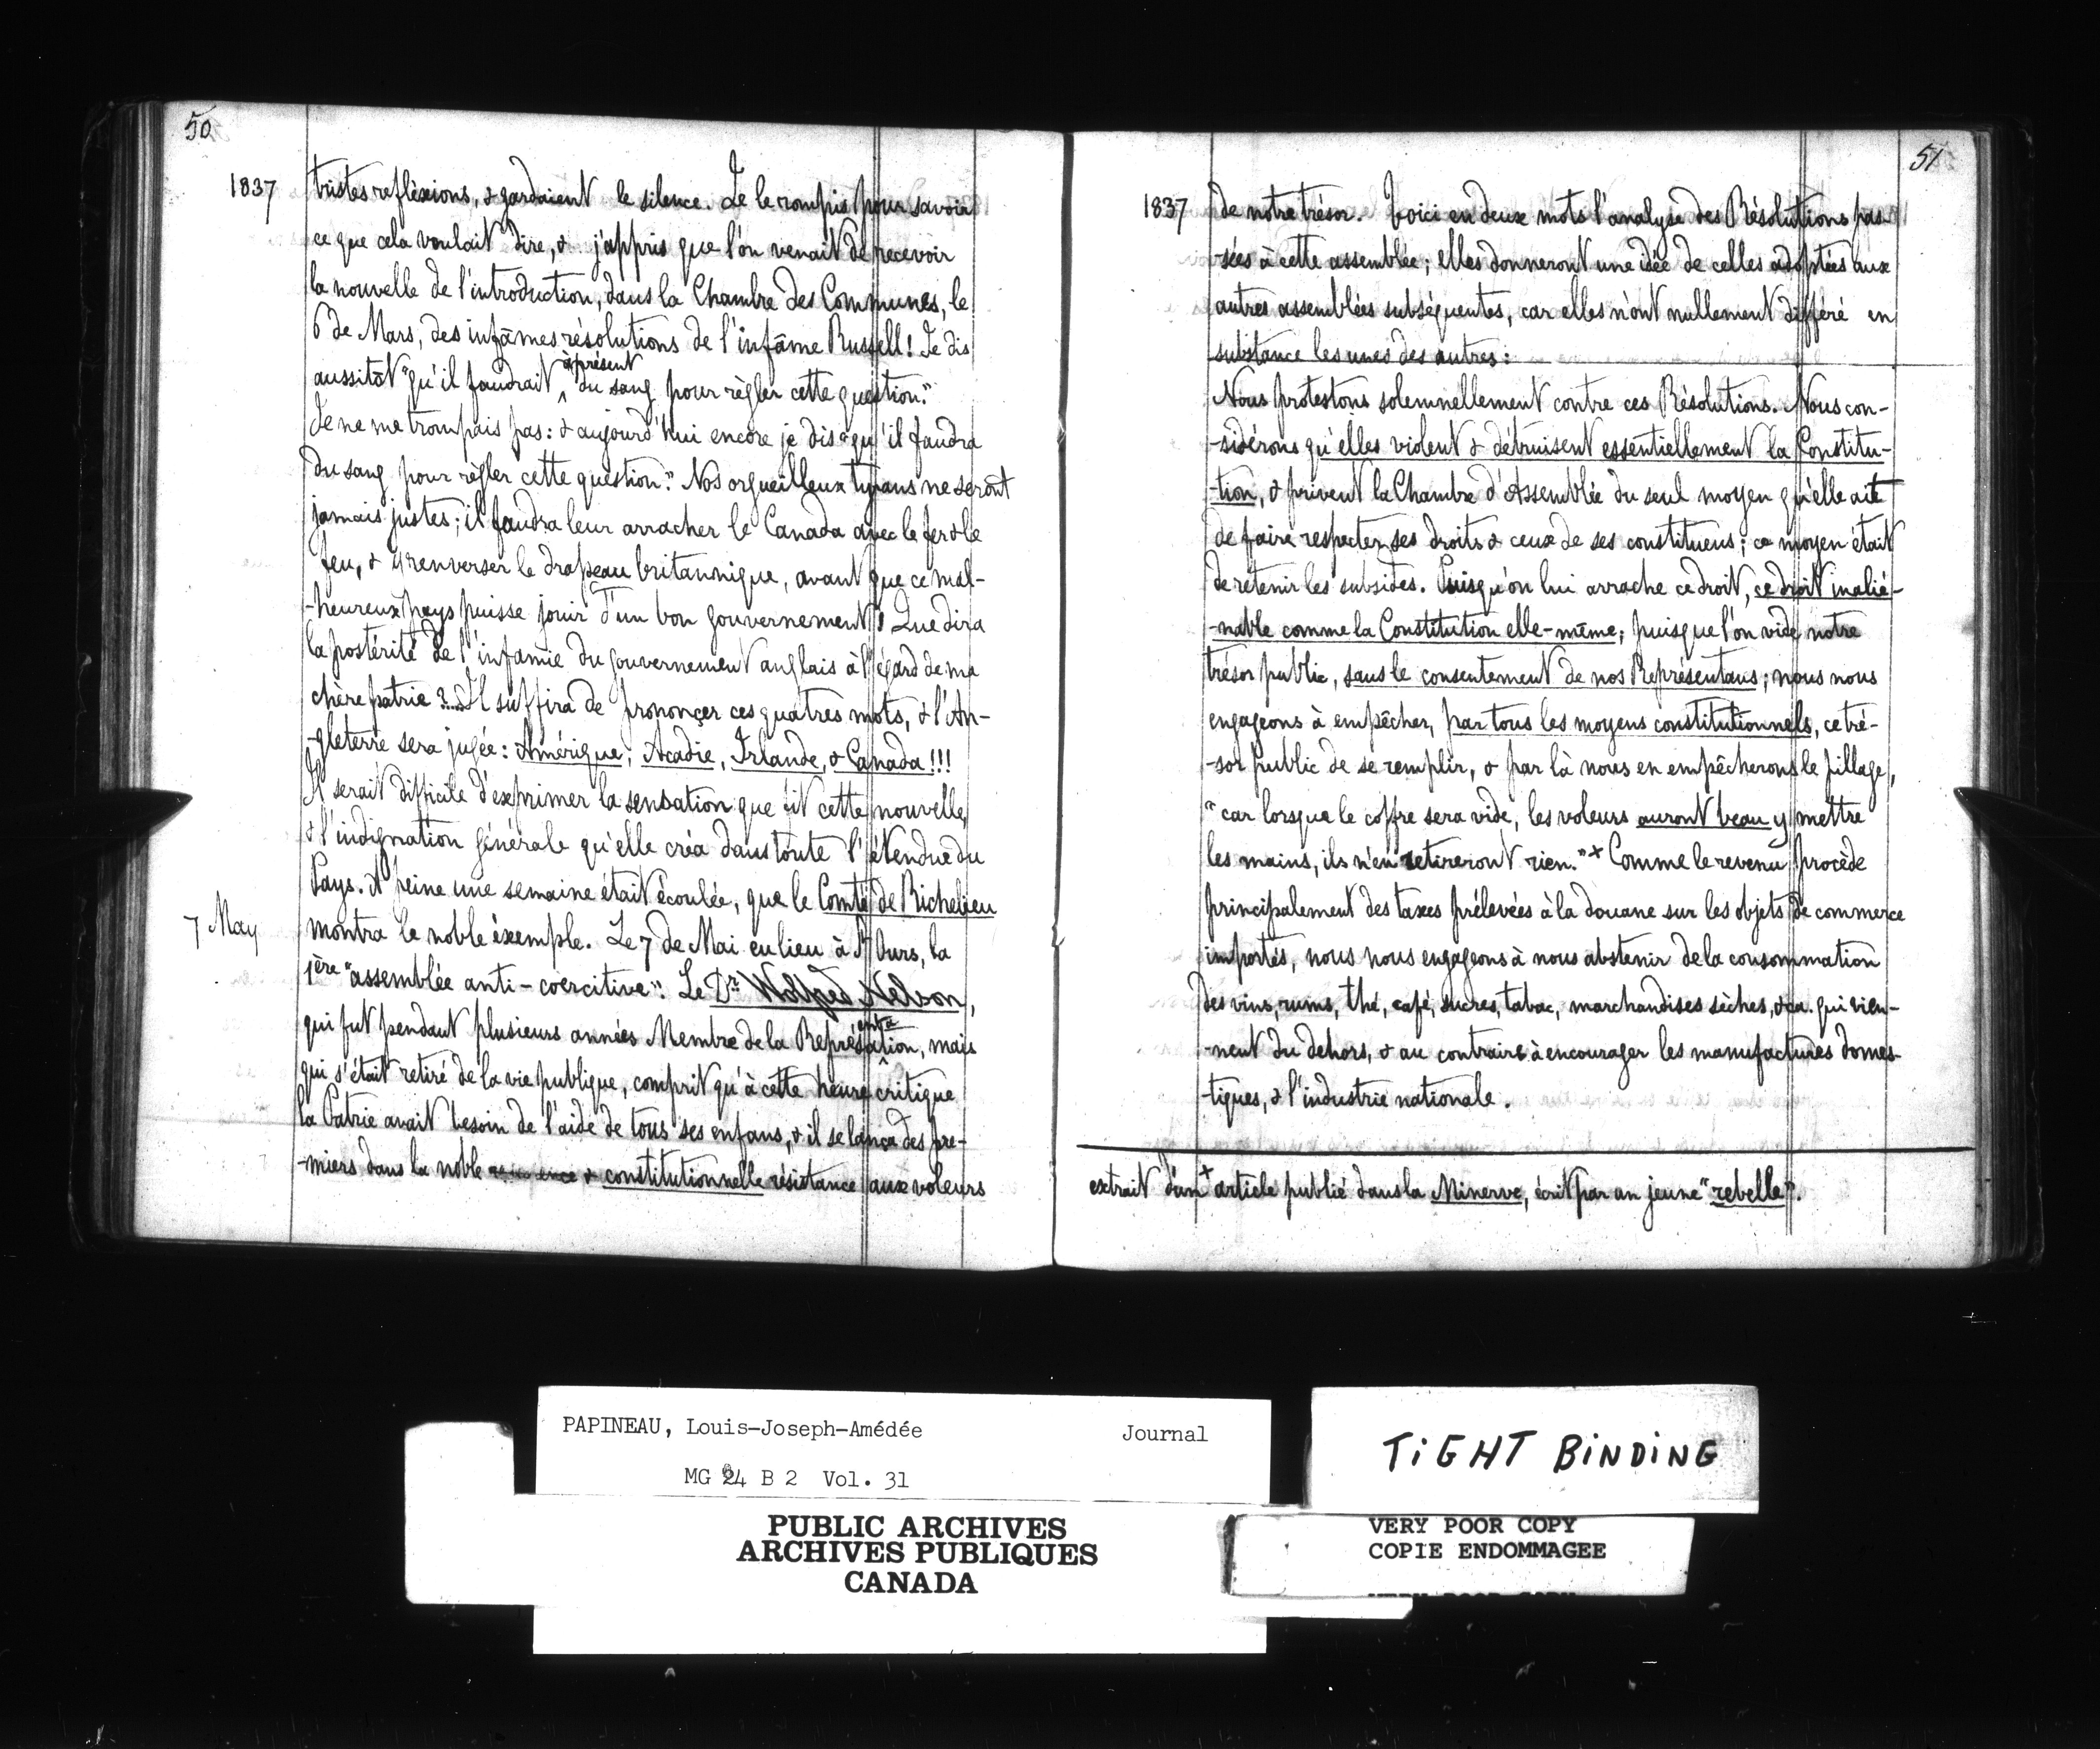 50
1837
tristes reflèxions, & gardaient le silence. Je le rompis pour savoir
ce que cela voulait dire, & j'appris que l'on venait de recevoir
la nouvelle de l'introduction, dans la Chambre des Communes, le
6 de Mars, des infâmes résolutions de l'infâme Russell! Je dis
aussitôt "qu'il faudrait àprésent du sang pour règler cette question."
Je ne me trompais pas: & aujourd'hui encore je dis "qu'il faudra
du sang pour règler cette question." Nos orgueilleux tyrans ne seront
jamais justes; il faudra leur arracher le Canada avec le fer & le
feu, & y renverser le drapeau britannique, avant que ce mal-
-heureux pays puisse jouir d'un bon gouvernement! Que dira
la postérité de l'infamie du gouvernement anglais à l'égard de ma
chère patrie ?.... Il suffira de prononçer ces quatres mots, & l'An-
-gleterre sera jugée: Amérique, Acadie, Irlande, & Canada!!!
Il serait difficile d'exprimer la sensation que fit cette nouvelle,
& l'indignation générale qu'elle créa dans toute l'étendue du
Pays. A peine une semaine était écoulée, que le Comté de Richelieu
7 May
montra le noble éxemple. Le 7 de Mai eu lieu à St Ours, la
1ère "assemblée anti-coercitive". Le Dr. Wolfred Nelson,
qui fut pendant plusieurs années Membre de la Représentation, mais
qui s'était retiré de la vie publique, comprit qu'à cette heure critique
la Patrie avait besoin de l'aide de tous ses enfans, & il se lança des pre-
-miers dans la noble & constitutionnelle résistance aux voleurs
51
1837
de notre trésor. Voici en deux mots l'analyse des Résolutions pas-
-sées à cette assemblée; elles donneront une idée de celles adoptées aux
autres assemblées subséquentes, car elles n'ont nullement différé en
substance les unes des autres:
Nous protestons solemnellement contre ces Résolutions. Nous con-
-sidérons qu'elles violent & détruisent essentiellement la Constitu-
-tion, & privent la Chambre d'Assemblée du seul moyen qu'elle ait
de faire respecter ses droits & ceux de ses constituens; ce moyen était
de retenir les subsides. Puisqu'on lui arrache ce droit, ce droit inalié-
-nable comme la Constitution elle-même; puisque l'on vide notre
trésor public, sans le consentement de nos Représentans; nous nous
engageons à empêcher, par tous les moyens constitutionnels, ce tré-
-sor public de se remplir, & par là nous en empêcherons le pillage,
"car lorsque le coffre sera vide, les voleurs auront beau y mettre
les mains, ils n'en retireront rien."+ Comme le revenu procède
principalement des taxes prélevées à la douane sur les objets de commerce
importés, nous nous engageons à nous abstenir de la consommation
des vins, rums, thé, café, sucres, tabac, marchandises sèches, &ca. qui vien-
-nent du dehors, & au contraire à encourager les manufactures domes-
-tiques, & l'industrie nationale.
extrait d'un + article publié dans la Minerve, écrit par un jeune "rebelle".
PAPINEAU, Louis-Joseph-Amédée Journal
MG 24 B 2 Vol. 31
PUBLIC ARCHIVES
ARCHIVES PUBLIQUES
CANADA
TIGHT BINDING
VERY POOR COPY
COPIE ENDOMMAGEE